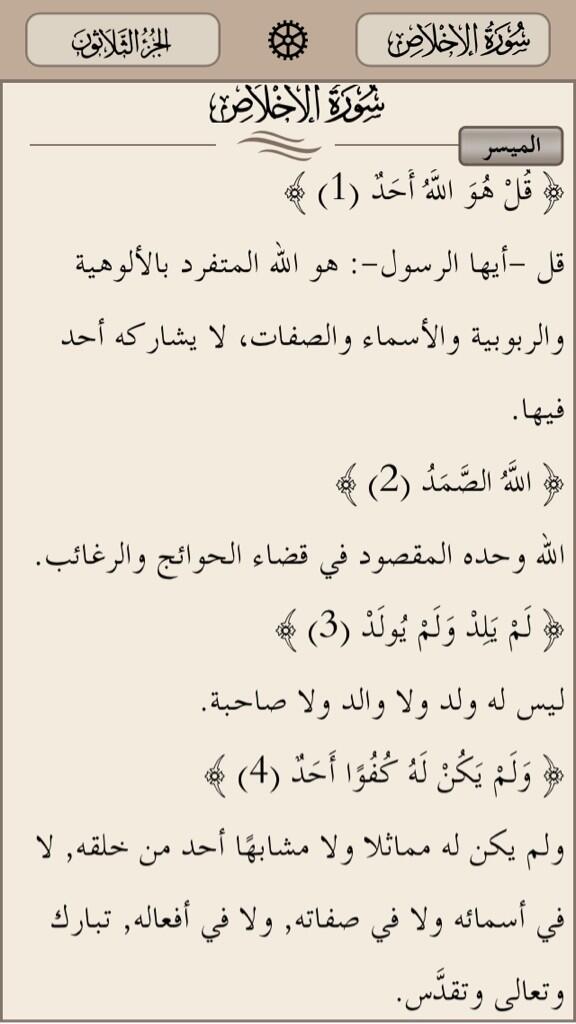 سُورَةُ الإِخْلَاصِ
الجُزْءُ الثَّلَاثُونَ
سُورَةُ الإِخْلَاصِ
الميسر
﴿ قُلْ هُوَ اللَّهُ أَحَدٌ (1) ﴾
قل -أيها الرسول-: هو الله المتفرد بالألوهية
والربوبية والأسماء والصفات، لا يشاركه أحد
فيها.
﴿ اللَّهُ الصَّمَدُ (2) ﴾
الله وحده المقصود في قضاء الحوائج والرغائب.
﴿ لَمْ يَلِدْ وَلَمْ يُولَدْ (3) ﴾
ليس له ولد ولا والد ولا صاحبة.
﴿ وَلَمْ يَكُنْ لَهُ كُفُوًا أَحَدٌ (4) ﴾
ولم يكن له مماثلا ولا مشابهًا أحد من خلقه, لا
في أسمائه ولا في صفاته, ولا في أفعاله, تبارك
وتعالى وتقدَّس.